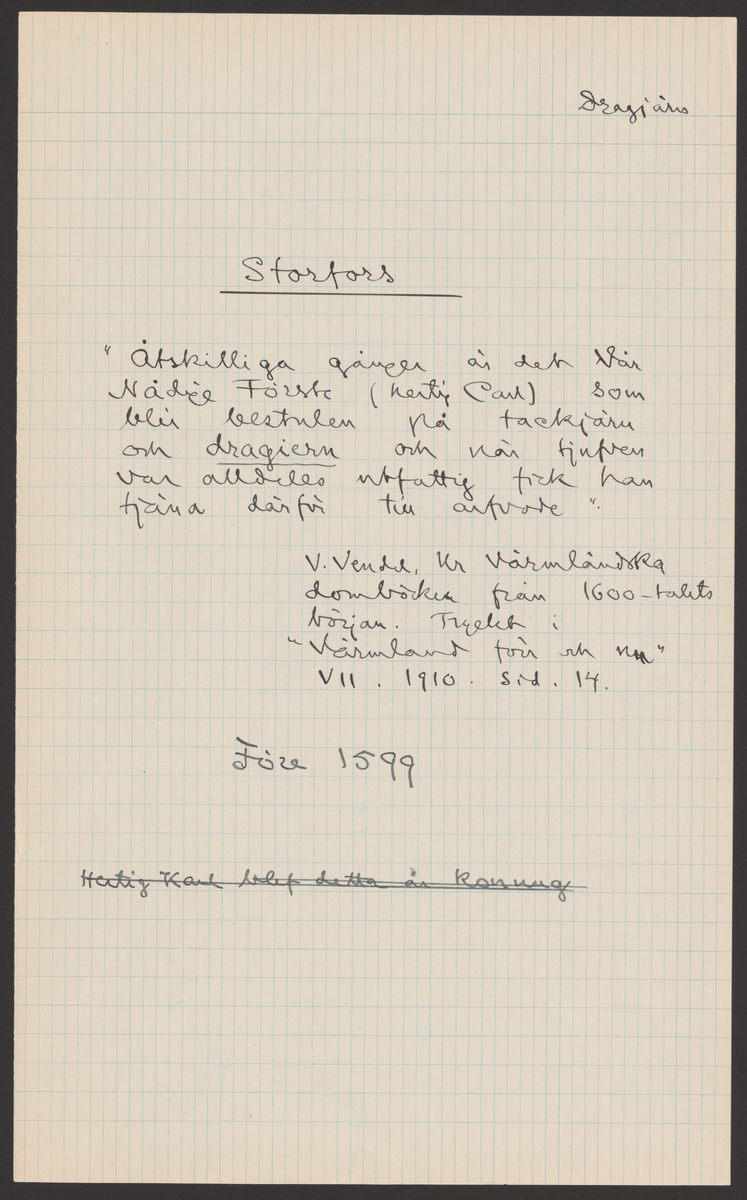 Dragjärn
Storfors
"Åtskilliga gånger är det Vår
Nådige Förste (hertig Carl) som
blir bestulen på tackjärn
och dragiern och när tjufven
var alldeles utfattig fick han
tjäna därför till arfvode".
V. Vendel, Ur Värmländska
domböcker från 1600-talets
början. Tryckt i
"Värmland förr och nu"
VII. 1910. Sid. 14.
Före 1599
Hertig Karl blef detta år konung